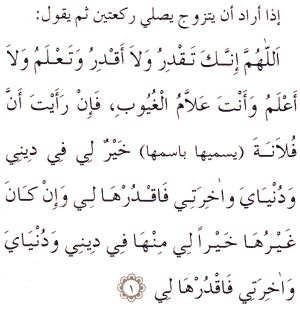 إذا أراد أن يتزوج يصلي ركعتين ثم يقول:
اَللّٰهُمَّ إِنَّكَ تَقْدِرُ وَلاَ أَقْدِرُ وَتَعْلَمُ وَلاَ
أَعْلَمُ وَأَنْتَ عَلاَّمُ الْغُيُوبِ، فَإِنْ رَأَيْتَ أَنَّ
فُلاَنَةَ (يسميها باسمها) خَيْرٌ لِي فِي دِينِي
وَدُنْيَايَ وَاٰخِرَتِي فَاقْدُرْهَا لِي وَإِنْ كَانَ
غَيْرُهَا خَيْراً لِي مِنْهَا فِي دِينِي وَدُنْيَايَ
وَاٰخِرَتِي فَاقْدُرْهَا لِي ١